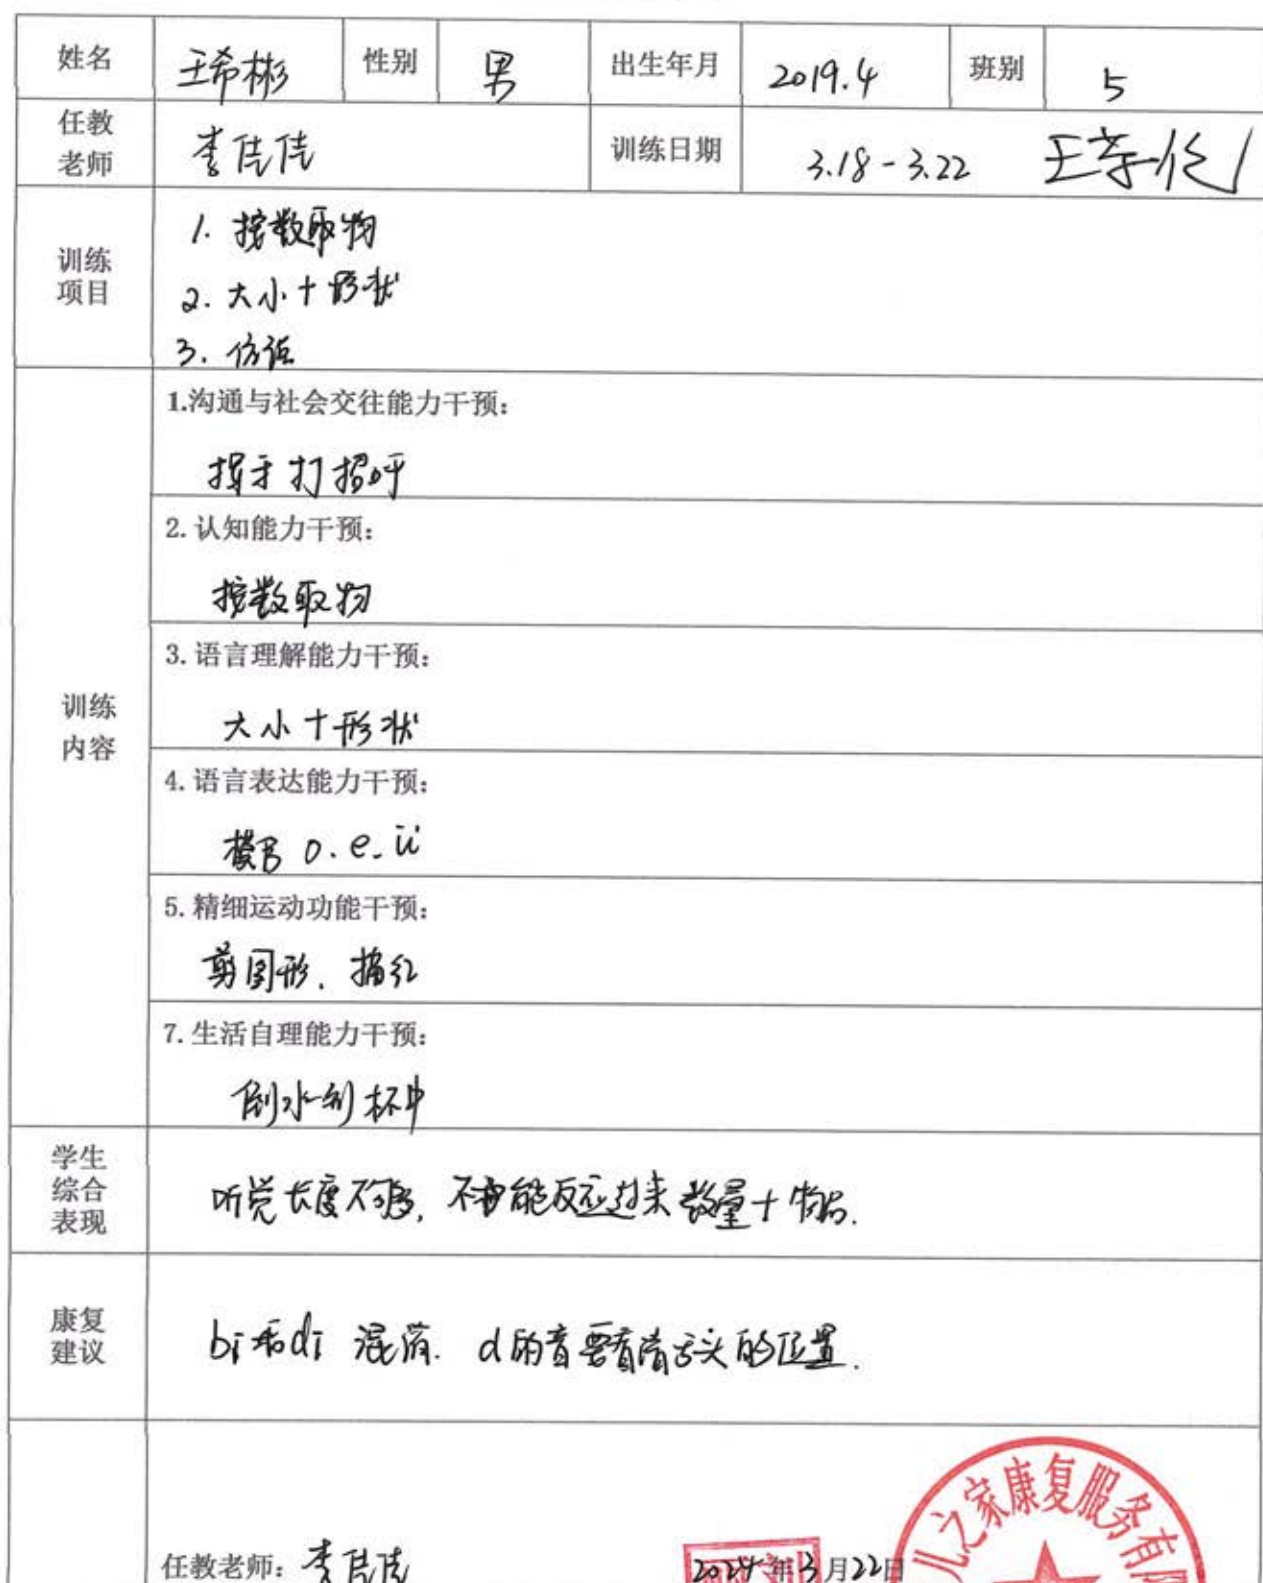 姓名 王希彬 性别 男 出生年月 2019.4 班别 5
任教老师 李佳佳 训练日期 3.18-3.22
训练项目
1. 按数取物
2. 大小+形状
3. 仿说
训练内容
1.沟通与社会交往能力干预：
挥手打招呼
2.认知能力干预：
按数取物
3.语言理解能力干预：
大小+形状
4.语言表达能力干预：
模仿 o.e.ü
5.精细运动功能干预：
剪图形、描红
7.生活自理能力干预：
倒水到杯中
学生综合表现
听觉长度不够，不能反应过来数量+物品.
康复建议
bi和di 混淆. d的音要看清舌头的位置.
儿之家康复服务有限
任教老师：李佳佳 2024年3月22日